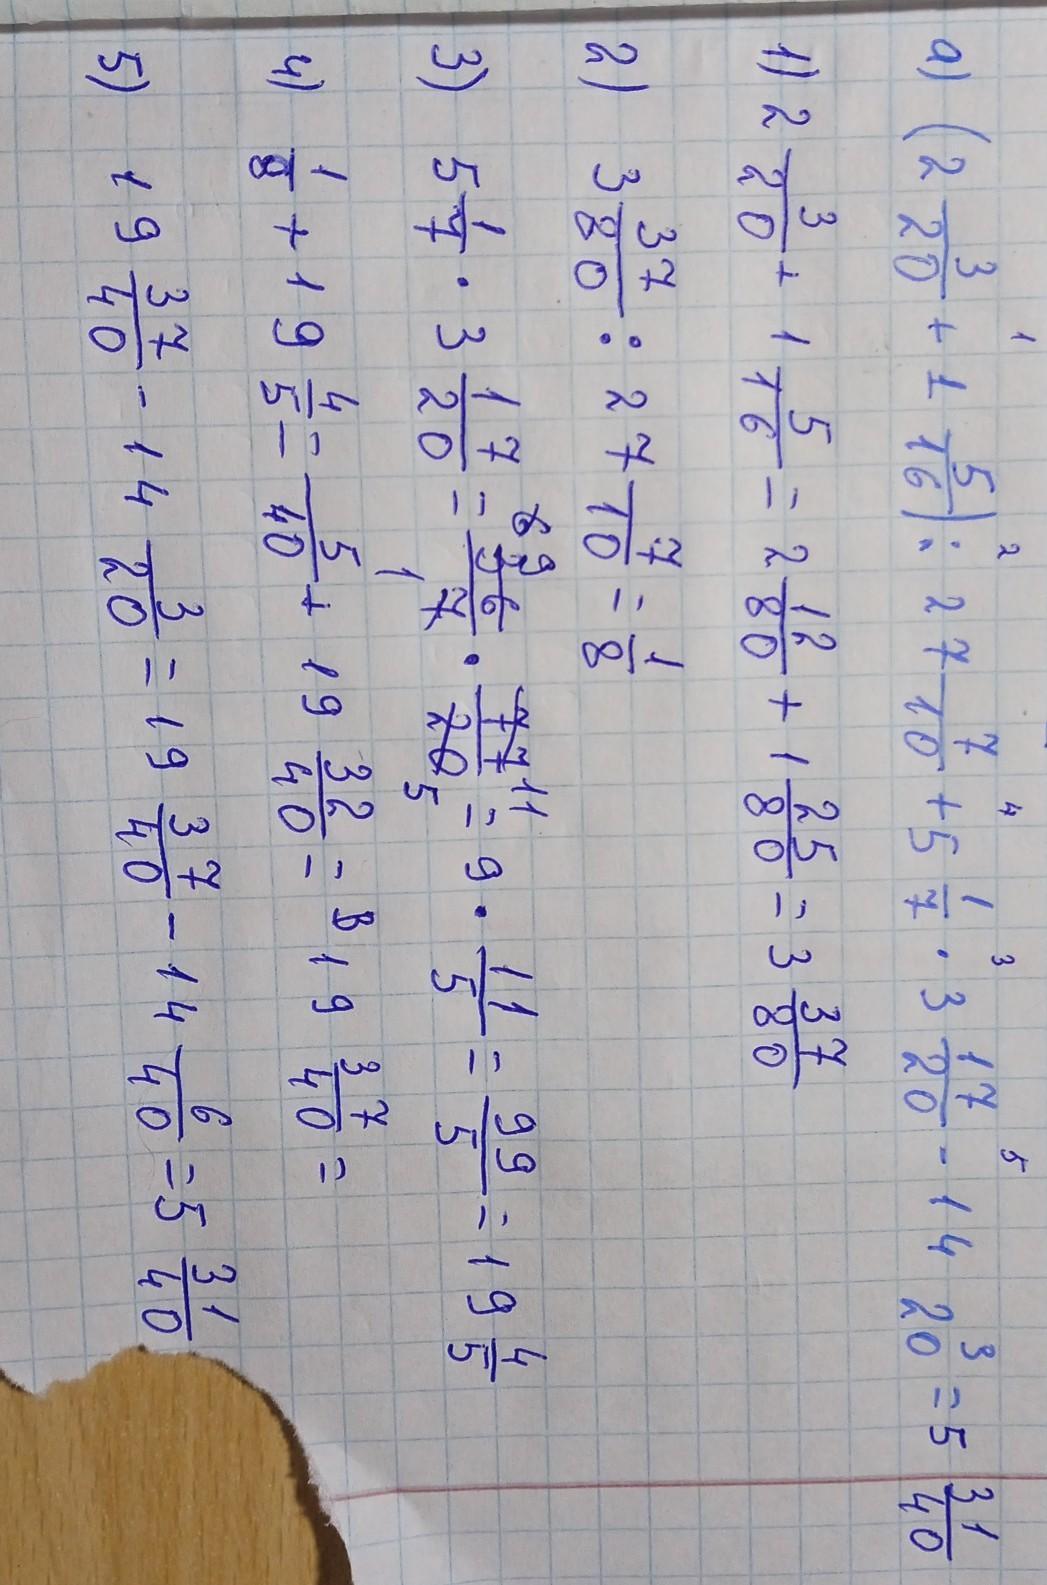 1 2 4 3 5
а) (2 3/20 + 1 5/16) : 27 7/10 + 5 1/7 · 3 17/20 - 14 3/20 = 5 31/40
1) 2 3/20 + 1 5/16 = 2 12/80 + 1 25/80 = 3 37/80
2) 3 37/80 : 27 7/10 = 1/8
3) 5 1/7 · 3 17/20 = 36/7 · 77/20 = 9 · 11/5 = 99/5 = 19 4/5
4) 1/8 + 19 4/5 = 5/40 + 19 32/40 = 19 37/40 =
5) 19 37/40 - 14 3/20 = 19 37/40 - 14 6/40 = 5 31/40